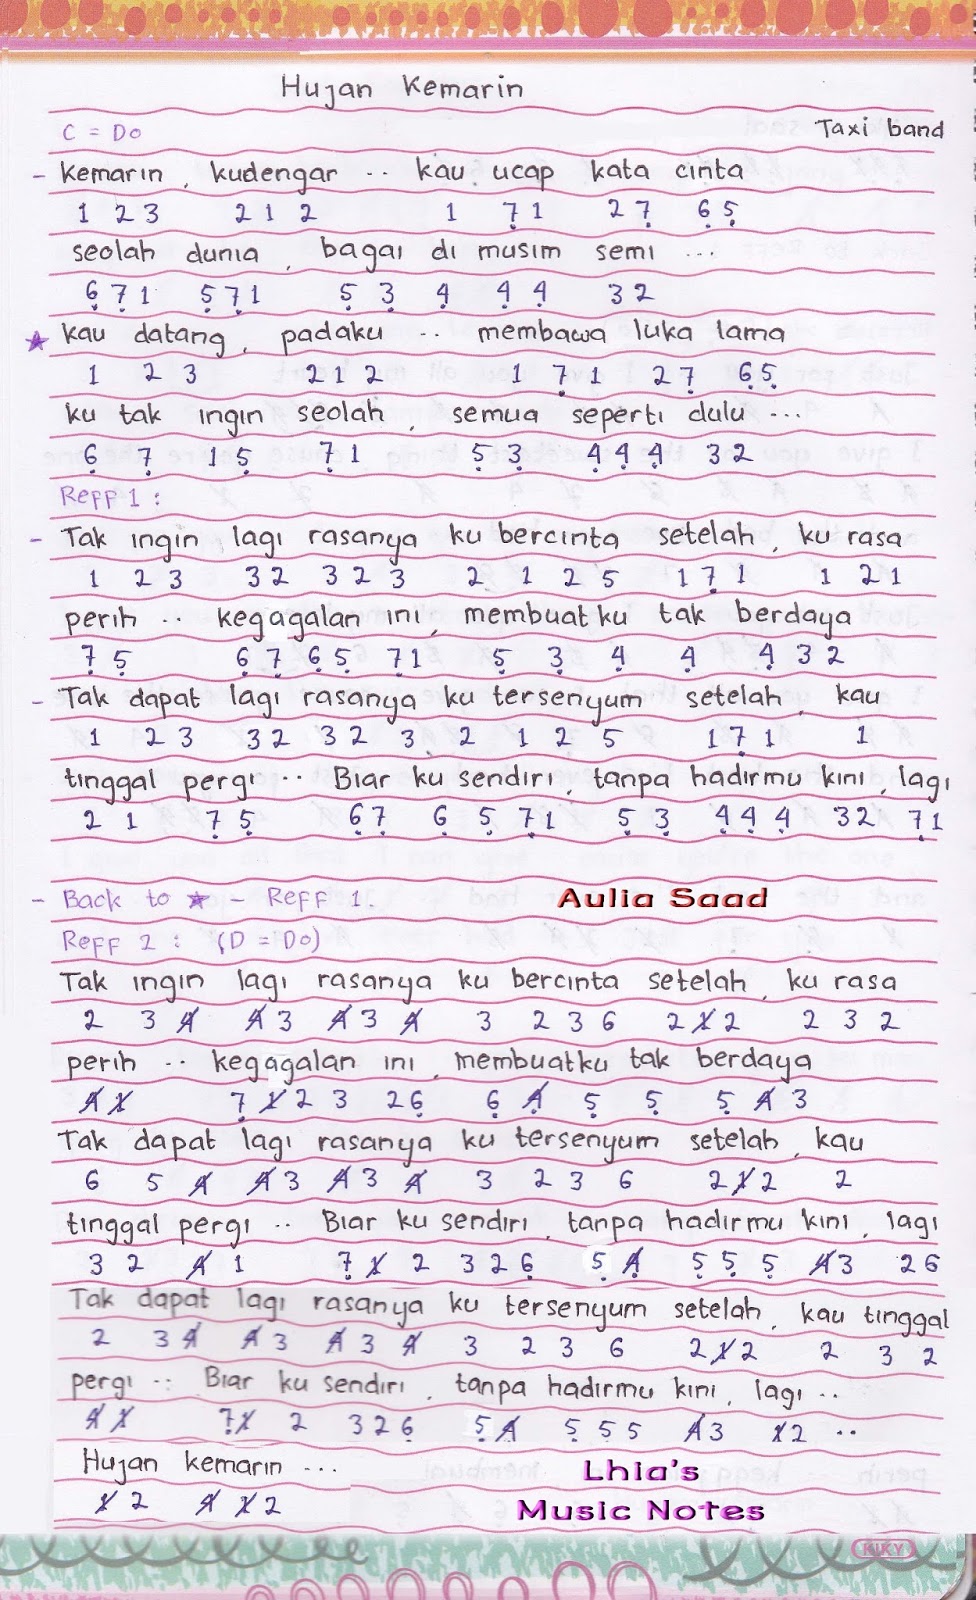 Hujan Kemarin
C = Do Taxi band
- kemarin, kudengar .. kau ucap kata cinta
1 2 3 2 1 2 1 7̣ 1 2 7̣ 6̣ 5̣
seolah dunia, bagai di musim semi ...
6̣ 7̣ 1 5̣ 7̣ 1 5̣ 3̣ 4̣ 4̣ 4̣ 3 2
★ kau datang, padaku .. membawa luka lama
1 2 3 2 1 2 1 7̣ 1 2 7̣ 6̣ 5̣
ku tak ingin seolah, semua seperti dulu ...
6̣ 7̣ 1 5̣ 7̣ 1 5̣ 3̣ 4̣ 4̣ 4̣ 3 2
Reff 1 :
- Tak ingin lagi rasanya ku bercinta setelah, ku rasa
1 2 3 3 2 3 2 3 2 1 2 5 1 7̣ 1 1 2 1
perih .. kegagalan ini, membuatku tak berdaya
7̣ 5̣ 6̣ 7̣ 6̣ 5̣ 7̣ 1 5̣ 3̣ 4̣ 4̣ 4̣ 3 2
- Tak dapat lagi rasanya ku tersenyum setelah, kau
1 2 3 3 2 3 2 3 2 1 2 5 1 7̣ 1 1
tinggal pergi .. Biar ku sendiri, tanpa hadirmu kini, lagi
2 1 7̣ 5̣ 6̣ 7̣ 6̣ 5̣ 7̣ 1 5̣ 3̣ 4̣ 4̣ 4̣ 3 2 7̣ 1
- Back to ★ - Reff 1. Aulia Saad
Reff 2 : (D = Do)
Tak ingin lagi rasanya ku bercinta setelah, ku rasa
2 3 4̸ 4̸ 3 4̸ 3 4̸ 3 2 3 6 2 1̸ 2 2 3 2
perih .. kegagalan ini, membuatku tak berdaya
4̸ 1̸ 7̣ 1̸ 2 3 2 6̣ 6̣ 4̸̣ 5̣ 5̣ 5̣ 4̸ 3
Tak dapat lagi rasanya ku tersenyum setelah, kau
6 5 4̸ 4̸ 3 4̸ 3 4̸ 3 2 3 6 2 1̸ 2 2
tinggal pergi .. Biar ku sendiri, tanpa hadirmu kini, lagi
3 2 4̸ 1 7̣ 1̸ 2 3 2 6̣ 5̣ 4̸̣ 5̣ 5̣ 5̣ 4̸ 3 2 6
Tak dapat lagi rasanya ku tersenyum setelah, kau tinggal
2 3 4̸ 4̸ 3 4̸ 3 4̸ 3 2 3 6 2 1̸ 2 2 3 2
pergi .. Biar ku sendiri, tanpa hadirmu kini, lagi ..
4̸ 1̸ 7̣ 1̸ 2 3 2 6̣ 5̣ 4̸̣ 5̣ 5 5 4̸ 3 1̸ 2 ..
Hujan kemarin ... Lhia's
1̸ 2 4̸ 1̸ 1̸ 2 Music Notes
KIKY